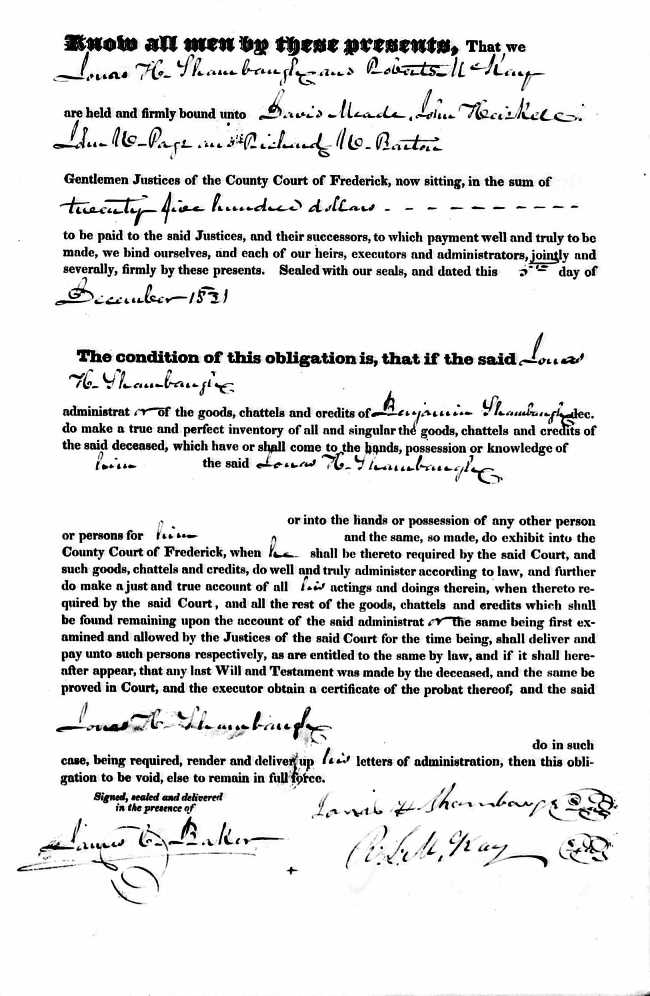 Know all men by these presents, That we
Jonas H. Shambaugh and Robert McKay
are held and firmly bound unto David Meade, John Heiskell
John W. Page and Richard W. Barton
Gentlemen Justices of the County Court of Frederick, now sitting, in the sum of
twenty five hundred dollars - - - - - - - - - -
to be paid to the said Justices, and their successors, to which payment well and truly to be
made, we bind ourselves, and each of our heirs, executors and administrators, jointly and
severally, firmly by these presents. Sealed with our seals, and dated this day of
December
The condition of this obligation is, that if the said Jonas
H. Shambaugh
administrat or of the goods, chattels and credits of Benjamin Shambaugh dec.
do make a true and perfect inventory of all and singular the goods, chattels and credits of
the said deceased, which have or shall come to the hands, possession or knowledge of
him the said Jonas H. Shambaugh
or into the hands or possession of any other person
or persons for him and the same, so made, do exhibit into the
County Court of Frederick, when he shall be thereto required by the said Court, and
such goods, chattels and credits, do well and truly administer according to law, and further
do make a just and true account of all his actings and doings therein, when thereto re-
quired by the said Court, and all the rest of the goods, chattels and credits which shall
be found remaining upon the account of the said administrat or the same being first ex-
amined and allowed by the Justices of the said Court for the time being, shall deliver and
pay unto such persons respectively, as are entitled to the same by law, and if it shall here-
after appear, that any last Will and Testament was made by the deceased, and the same be
proved in Court, and the executor obtain a certificate of the probat thereof, and the said
Jonas H. Shambaugh
do in such
case, being required, render and deliver up his letters of administration, then this obli-
gation to be void, else to remain in full force.
Signed, sealed and delivered
in the presence of
Jonas H Shambaugh
James C. Baker
McKay